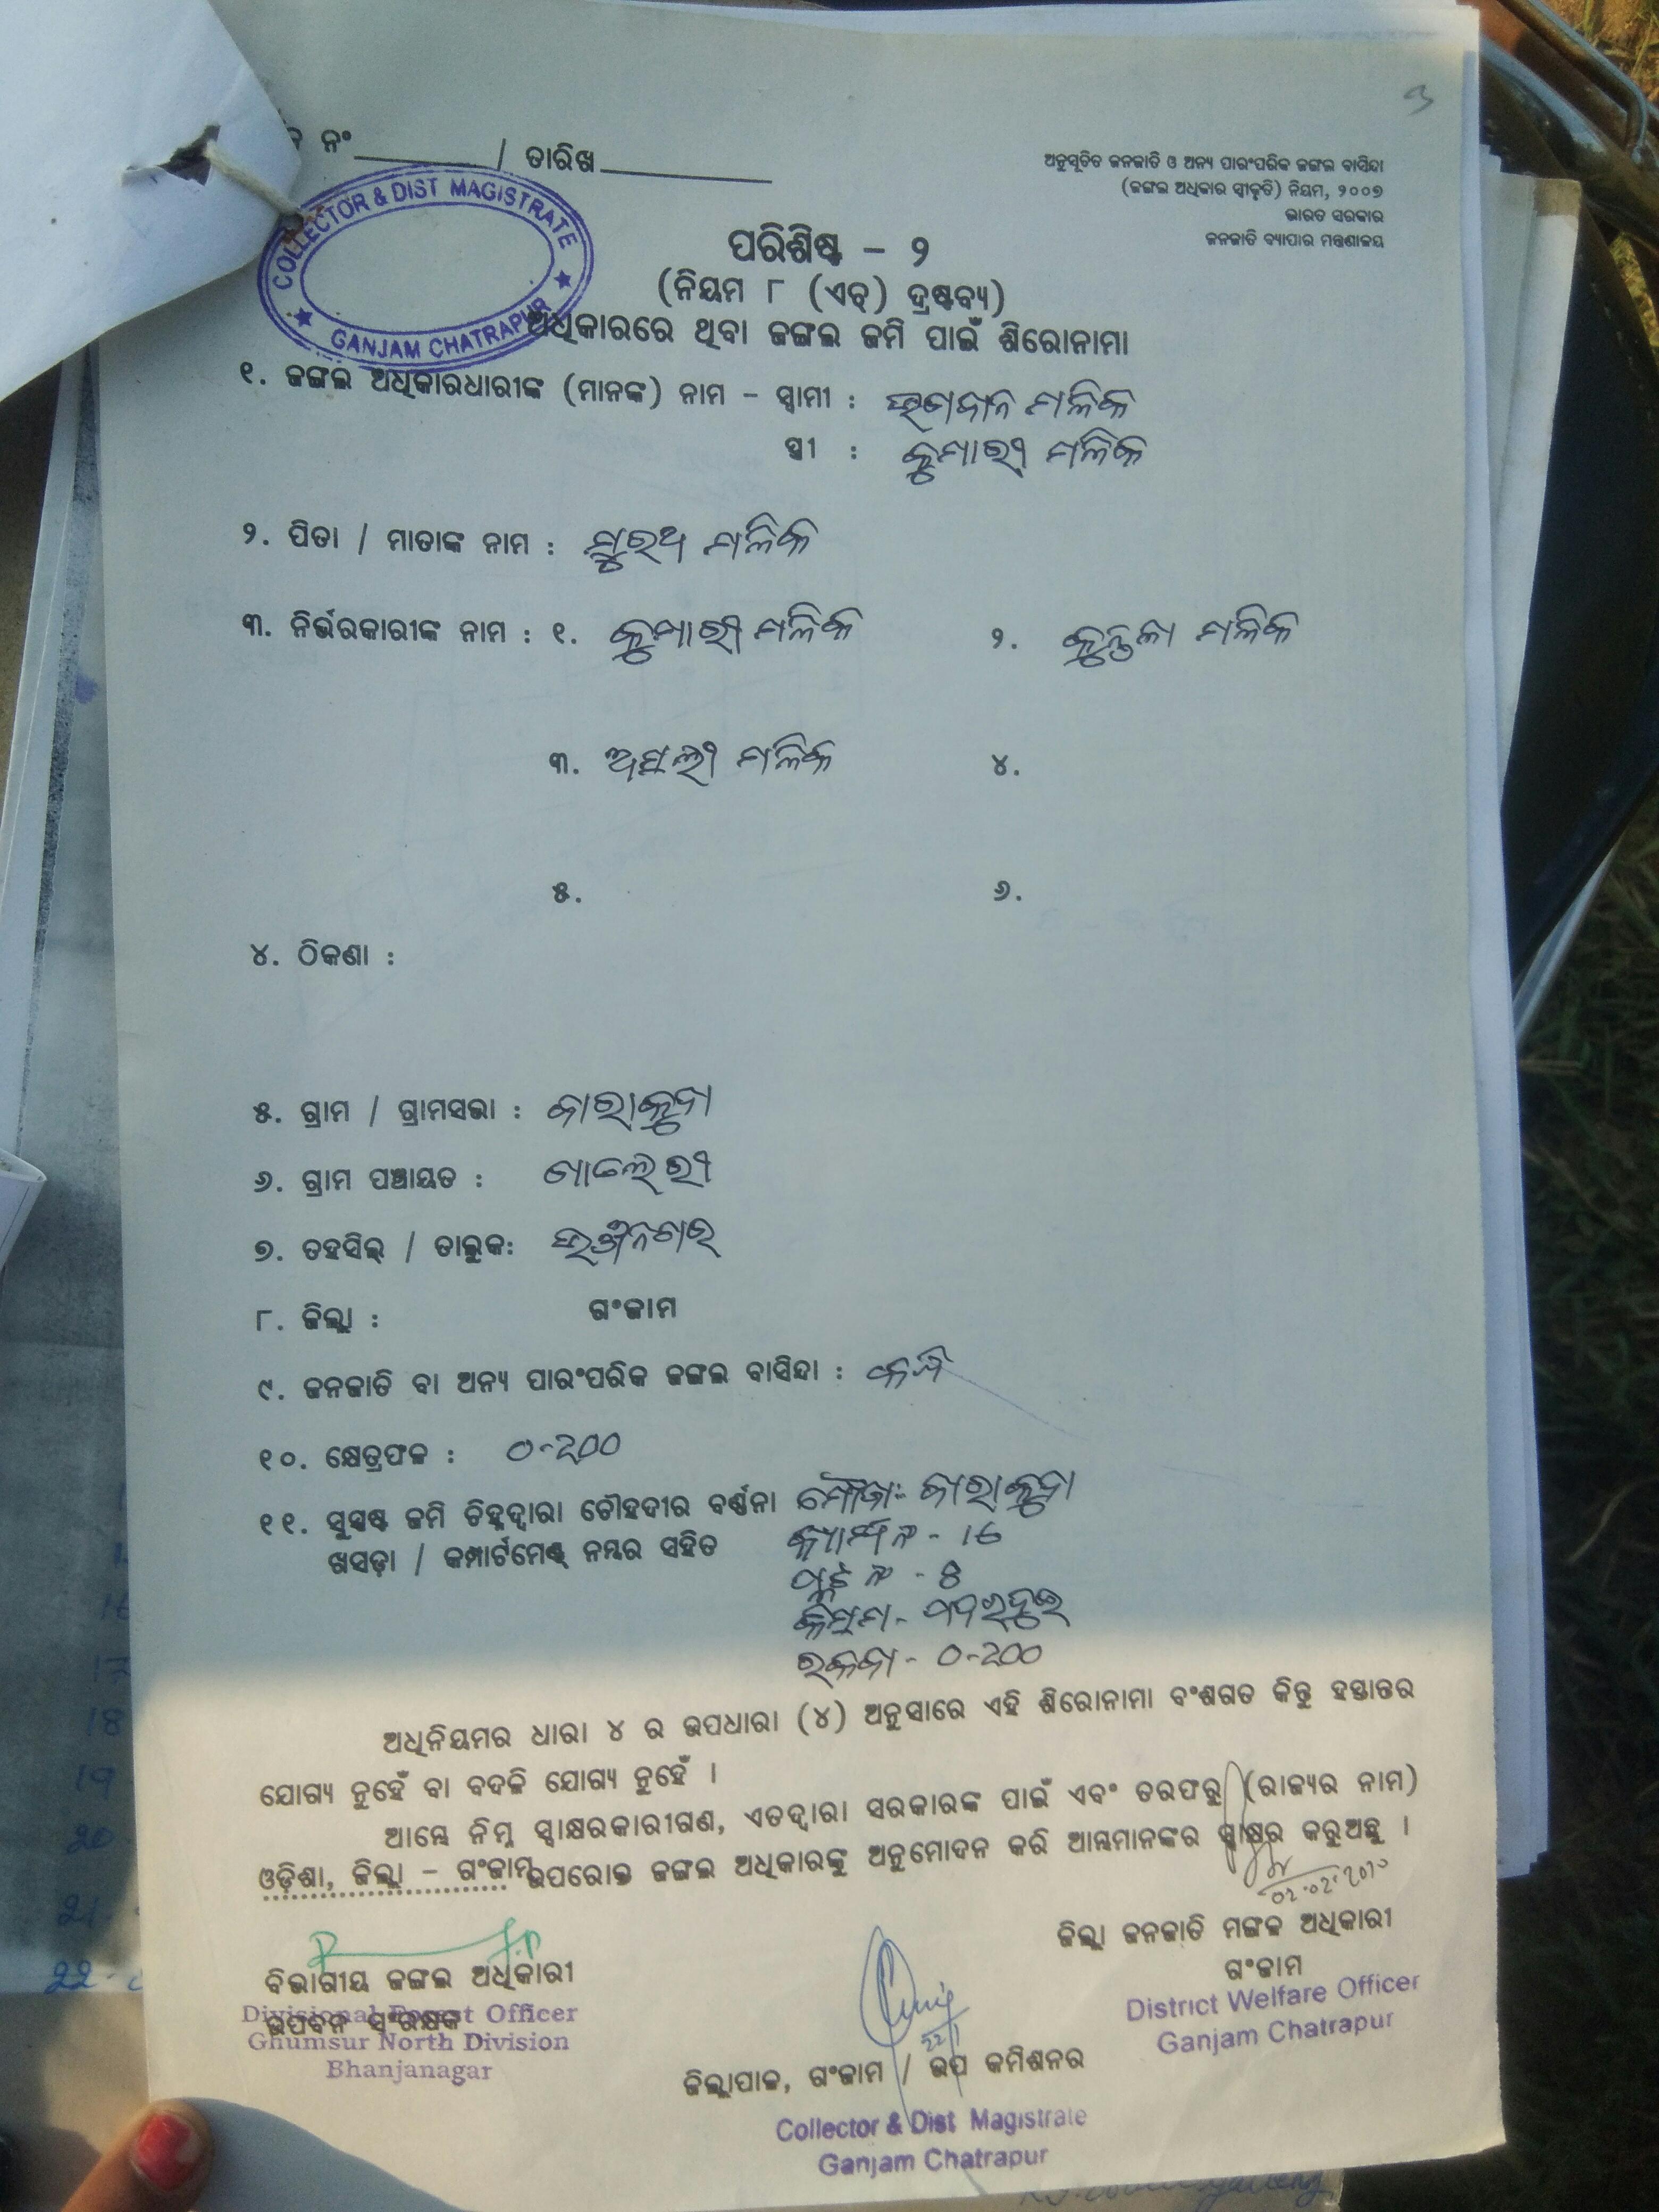 ନଂ / ତାରିଖ
3
ଅନୁସୂଚିତ ଜନଜାତି ଓ ଅନ୍ୟ ପାରଂପରିକ ଜଙ୍ଗଲ ବାସିନ୍ଦା
(ଜଙ୍ଗଲ ଅଧିକାର ସ୍ୱୀକୃତି) ନିୟମ, ୨୦୦୭
ଭାରତ ସରକାର
ଜନଜାତି ବ୍ୟାପାର ମନ୍ତ୍ରଣାଳୟ
COLLECTOR & DIST MAGISTRATE
GANJAM CHATRAPUR
ପରିଶିଷ୍ଟ – ୨
(ନିୟମ ୮ (ଏଚ୍) ଦ୍ରଷ୍ଟବ୍ୟ)
ଅଧିକାରରେ ଥିବା ଜଙ୍ଗଲ ଜମି ପାଇଁ ଶିରୋନାମା
୧. ଜଙ୍ଗଲ ଅଧିକାରଧାରୀଙ୍କ (ମାନଙ୍କ) ନାମ – ସ୍ୱାମୀ : ଭଗବାନ ମଳିକ
ସ୍ତ୍ରୀ : କୁମାରୀ ମଳିକ
୨. ପିତା / ମାତାଙ୍କ ନାମ : ସୁରଥ ମଳିକ
୩. ନିର୍ଭରକାରୀଙ୍କ ନାମ : ୧. କୁମାରୀ ମଳିକ ୨. କୁନ୍ତଳା ମଳିକ
୩. ମଳିକ ୪.
୫. ୬.
୪. ଠିକଣା :
୫. ଗ୍ରାମ / ଗ୍ରାମସଭା : ବାରାକୁଦା
୬. ଗ୍ରାମ ପଞ୍ଚାୟତ :
୭. ତହସିଲ୍ / ତାଲୁକ: ଭଞ୍ଜନଗର
୮. ଜିଲ୍ଲା : ଗଂଜାମ
୯. ଜନଜାତି ବା ଅନ୍ୟ ପାରଂପରିକ ଜଙ୍ଗଲ ବାସିନ୍ଦା : କନ୍ଧ
୧୦. କ୍ଷେତ୍ରଫଳ : 0-200
୧୧. ସୁସ୍ପଷ୍ଟ ଜମି ଚିହ୍ନଦ୍ୱାରା ଚୌହଦୀର ବର୍ଣ୍ଣନା ମୌଜା:- ବାରାକୁଦା
ଖସଡ଼ା / କମ୍ପାର୍ଟମେଣ୍ଟ୍ ନମ୍ବର ସହିତ - 16
ପ୍ଲଟ ନଂ - 8
କିସମ-
ରକବା - 0-200
ଅଧିନିୟମର ଧାରା ୪ ର ଉପଧାରା (୪) ଅନୁସାରେ ଏହି ଶିରୋନାମା ବଂଶଗତ କିନ୍ତୁ ହସ୍ତାନ୍ତର
ଯୋଗ୍ୟ ନୁହେଁ ବା ବଦଳି ଯୋଗ୍ୟ ନୁହେଁ ।
ଆମ୍ଭେ ନିମ୍ନ ସ୍ୱାକ୍ଷରକାରୀଗଣ, ଏତଦ୍ୱାରା ସରକାରଙ୍କ ପାଇଁ ଏବଂ ତରଫରୁ (ରାଜ୍ୟର ନାମ)
ଓଡ଼ିଶା, ଜିଲ୍ଲା – ଗଂଜାମ ଉପରୋକ୍ତ ଜଙ୍ଗଲ ଅଧିକାରଙ୍କୁ ଅନୁମୋଦନ କରି ଆମ୍ଭମାନଙ୍କର ସ୍ୱାକ୍ଷର କରୁଅଛୁ ।
02.02.2010
ଜିଲ୍ଲା ଜନଜାତି ମଙ୍ଗଳ ଅଧିକାରୀ
ଗଂଜାମ
District Welfare Officer
Ganjam Chatrapur
ବିଭାଗୀୟ ଜଙ୍ଗଲ ଅଧିକାରୀ
ଉପବନ ସଂରକ୍ଷକ
Divisional Forest Officer
Ghumsur North Division
Bhanjanagar
22/1
ଜିଲ୍ଲାପାଳ, ଗଂଜାମ / ଉପ କମିଶନର
Collector & Dist Magistrate
Ganjam Chatrapur
18
19
20
21
22